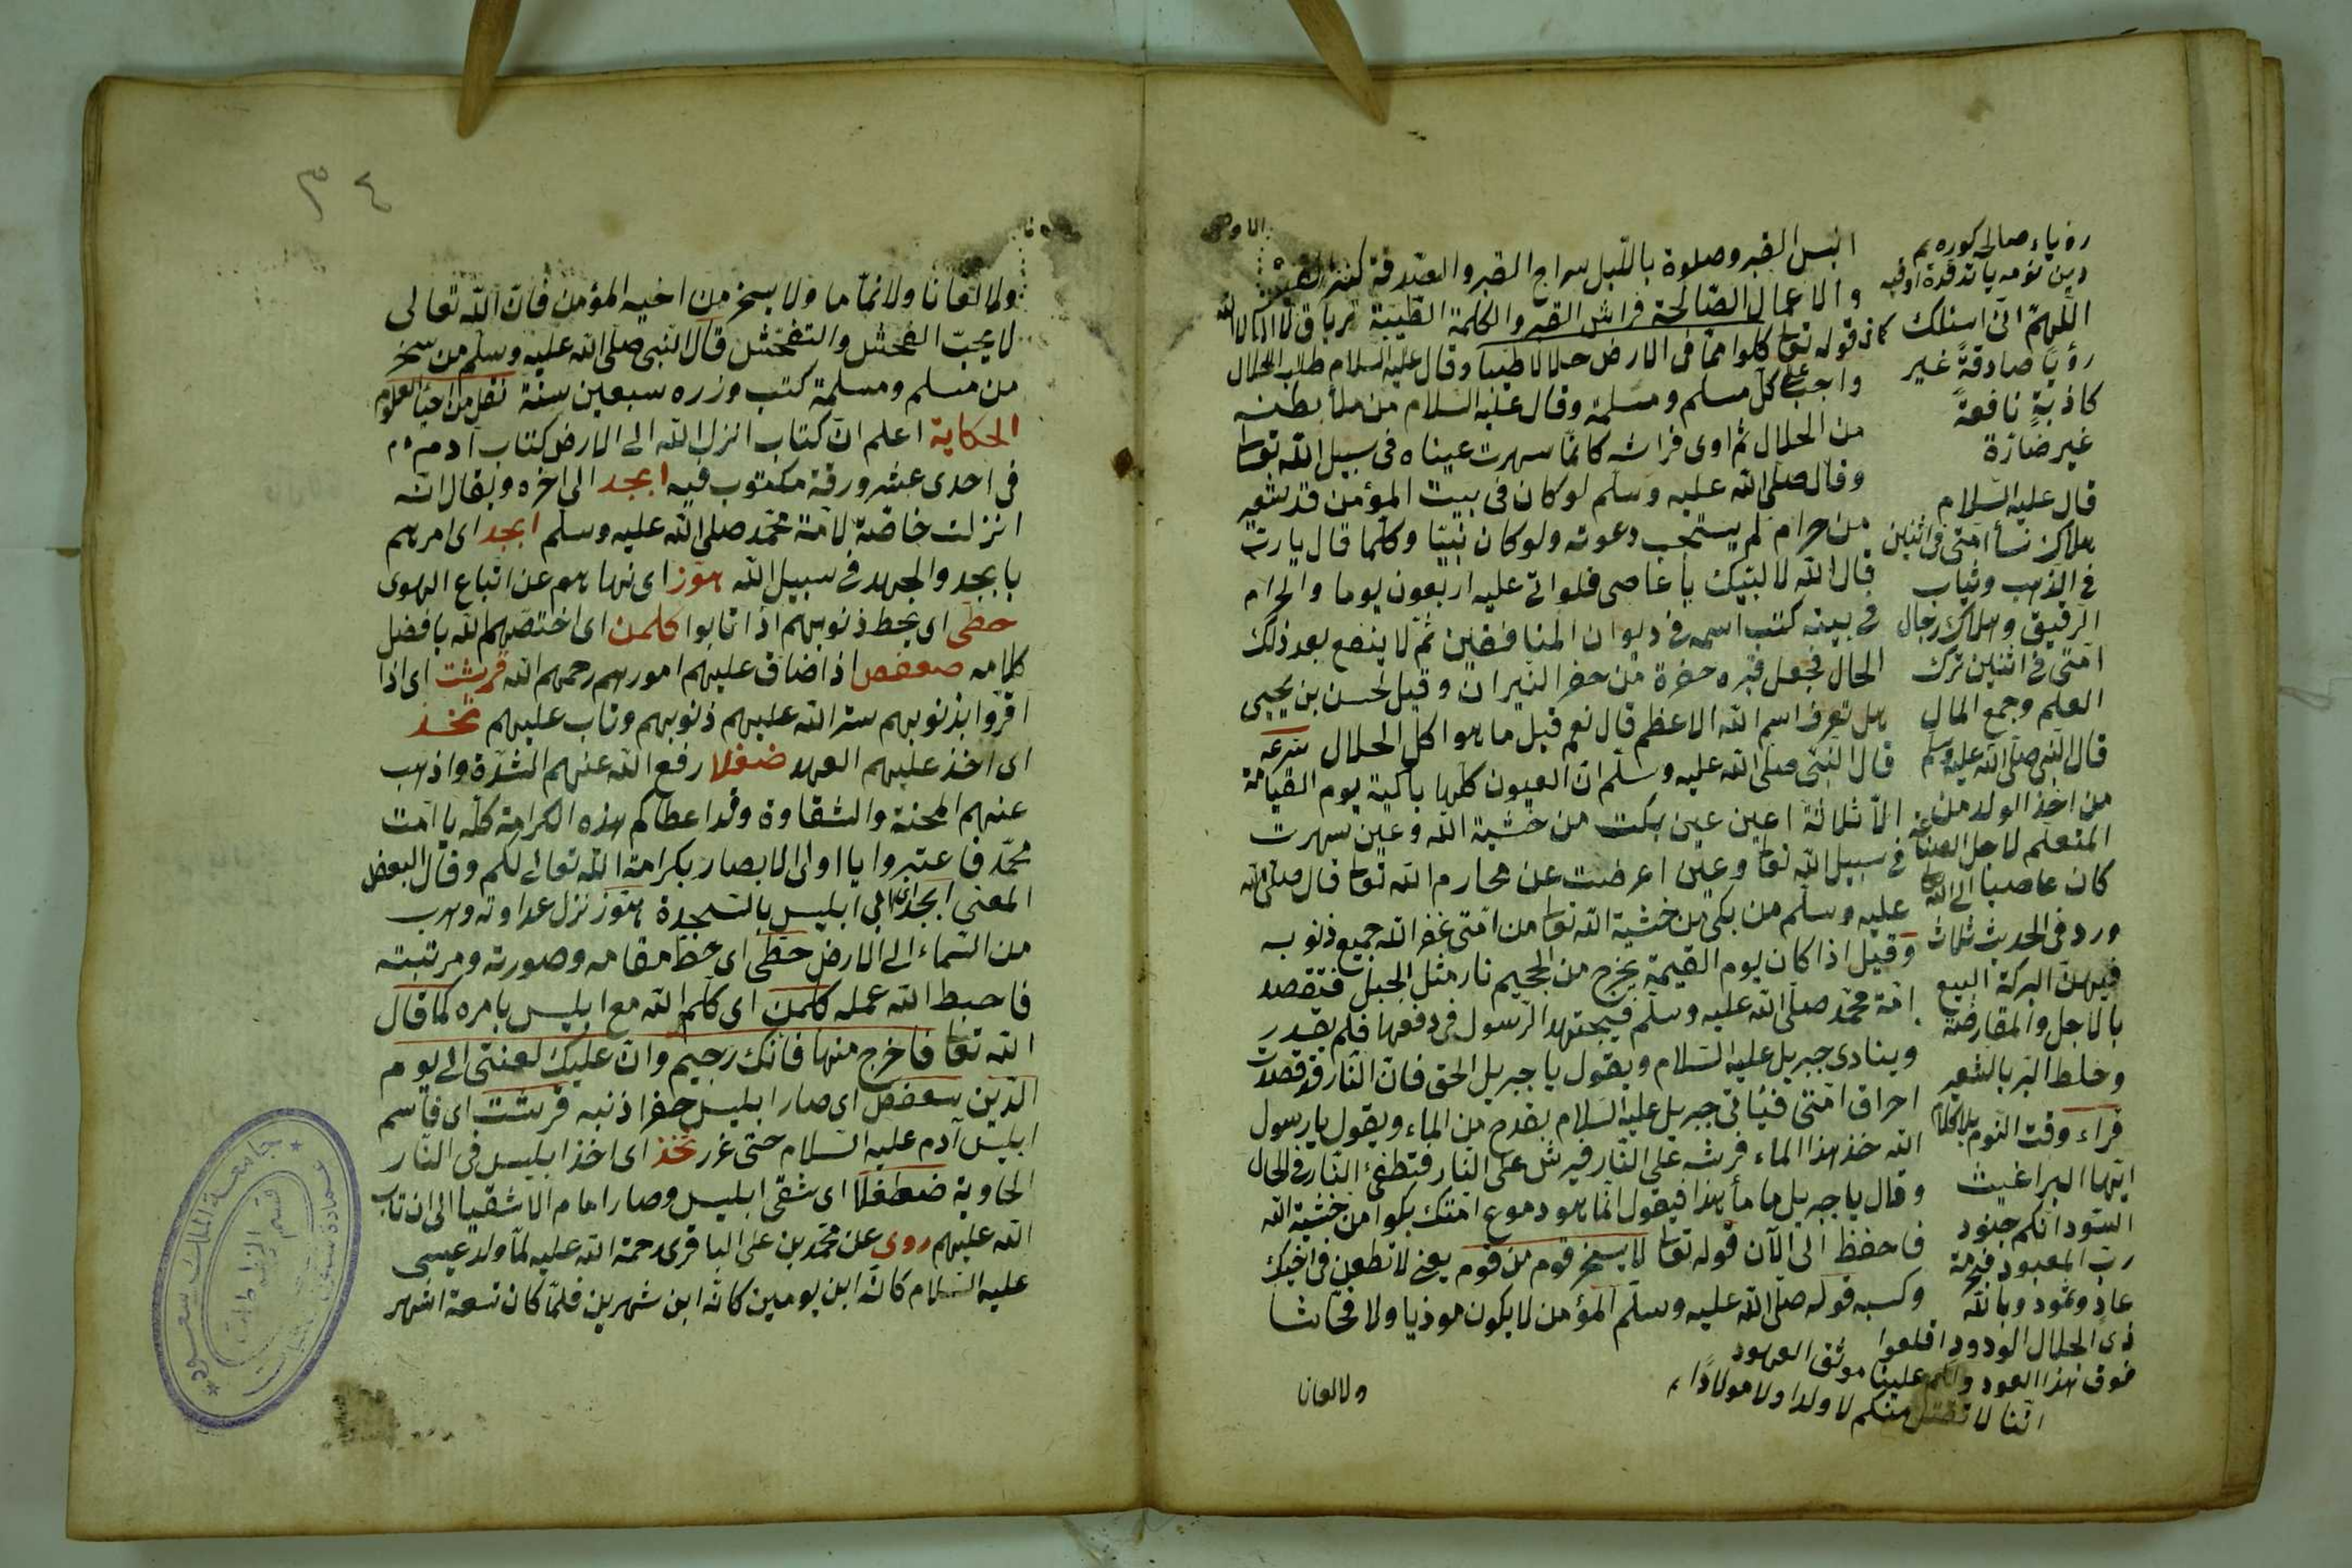 انيس القبر وصلوة بالليل سراج القبر والصدقة
والاعمال الصالحة فراش القبر والكلمة الطيبة ترياق لا اله الا الله
كما فى قوله تعا كلوا مما فى الارض حلالا طيبا وقال عليه السلام طلب الحلال
واجب على كل مسلم ومسلمة وقال عليه السلام من ملأ بطنه
من الحلال ثم اوى فراشه كانما سهرت عيناه فى سبيل الله تعا
وقال صلى الله عليه وسلم لو كان فى بيت المؤمن قد شعير
من حرام لم يستجب دعوته ولو كان نبيا وكلما قال يا رب
قال الله لا لبيك يا عاصى فلو اتى عليه اربعون يوما والحرام
فى بيته كتب اسمه فى ديوان المنافقين ثم لا ينفع بعد ذلك
الحال فجعل قبره حفرة من حفر النيران وقيل لحسن بن يحيى
هل تعرف اسم الله الاعظم قال نعم قيل ما هو اكل الحلال شرعه
قال النبى صلى الله عليه وسلم ان العيون كلها باكية يوم القيامة
الا ثلاثة اعين عين بكت من خشية الله وعين سهرت
فى سبيل الله تعا وعين اعرضت عن محارم الله تعا قال صلى الله
عليه وسلم من بكى من خشية الله تعا من امتى غفر الله جميع ذنوبه
وقيل اذا كان يوم القيمة يخرج من الجحيم نار مثل الجبل فتقصد
امة محمد صلى الله عليه وسلم فيجتهد الرسول فى دفعها فلم يقدر
وينادى جبريل عليه السلام ويقول يا جبريل الحق فان النار قد قصدت
احراق امتى فيأتى جبريل عليه السلام بقدح من الماء ويقول يا رسول
الله خذ هذا الماء فرشه على النار فيرش على النار فتطفئ النار فى الحال
وقال يا جبريل ما ماء هذا فيقول انما هو دموع امتك بكوا من خشية الله
فاحفظ الى الآن قوله تعا لا يسخر قوم من قوم يعنى لا تطعن فى اخيك
وكسبه قوله صلى الله عليه وسلم المؤمن لا يكون موذيا ولا فحاشا
ولا لعانا
اللهم انى اسئلك
رؤيا صادقة غير
كاذبة نافعة
غير ضارة
قال عليه السلام
هلاك نسأ امتى فى اثنين
فى الذهب وثياب
الرقيق وهلاك رجال
امتى فى اثنين ترك
العلم وجمع المال
قال النبى صلى الله عليه وسلم
من اخذ الولد من
المتعلم لاجل
كان عاصيا الى الله
ورد فى الحديث ثلاث
فيهن البركة البيع
بالاجل والمقارضة
وخلط البر بالشعير
قراء وقت النوم
ايتها البراغيث
السود انكم جنود
رب المعبود
عاد وثمود وبالله
ذى الجلال الودود
فوق هذا العود علينا موثق العهود
اننا لا نقتل منكم لا ولدا ولا مولادا
٣٤
ولا لعانا ولا نماما ولا يسخر من اخيه المؤمن فان الله تعالى
لا يحب الفحش والتفحش قال النبى صلى الله عليه وسلم من سخر
من مسلم ومسلمة كتب وزره سبعين سنة نقل من احيأ العلوم
الحكاية اعلم ان كتاب انزل الله الى الارض كتاب آدم
فى احدى عشر ورقة مكتوب فيه ابجد الى اخره ويقال انه
انزلت خاصة لامة محمد صلى الله عليه وسلم ابجد اى امرهم
با بجد والجهد فى سبيل الله هوز اى نهاهم عن اتباع الهوى
حطى اى يحط ذنوبهم اذا تابوا كلمن اى اختصهم الله بافضل
كلامه صعفص اذا ضاق عليهم امورهم رحمهم الله قرشت اى اذا
اقروا بذنوبهم ستر الله عليهم ذنوبهم وتاب عليهم ثخذ
اى اخذ عليهم العهد ضغلا رفع الله عنهم الشدة واذهب
عنهم المحنة والشقاوة وقد اعطاكم هذه الكرامة كله يا امت
محمد فاعتبروا يا اولى الابصار بكرامة الله تعالى لكم وقال البعض
المعنى ابجد ابى ابليس بالسجدة هوز نزل عداوته وهرب
من السماء الى الارض حطى اى حط مقامه وصورته ومرتبته
فاحبط الله عمله كلمن اى كلم الله مع ابليس بامره كما قال
الله تعا فاخرج منها فانك رجيم وان عليك لعنتى الى يوم
الدين سعفص اى صار ابليس ذنبه قرشت اى قاسم
ابليس آدم عليه السلام حتى غر ثخذ اى اخذ ابليس فى النار
الحاوية ضظغلا اى شقى ابليس وصار امام الاشقيا الى ان تاب
الله عليهم روى عن محمد بن على الباقرى رحمة الله عليه لما ولد عيسى
عليه السلام كانه ابن يومين كانه ابن شهرين فلما كان تسعة اشهر
جامعة الملك سعود